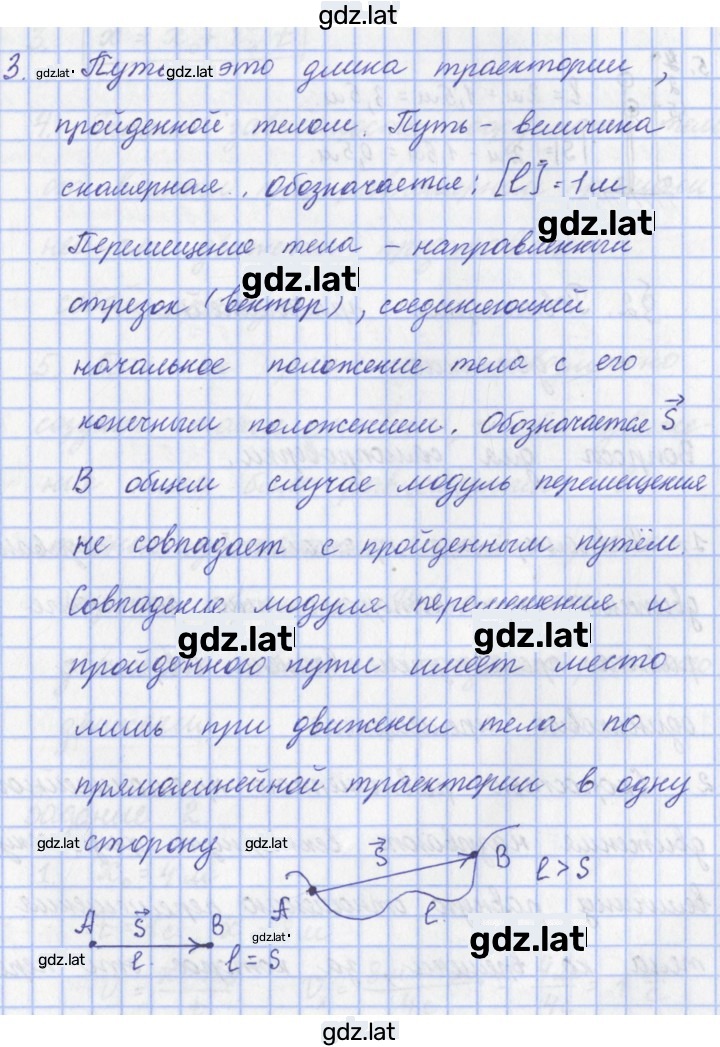 gdz.lat
3. gdz.lat Путь gdz.lat это длина траектории,
пройденной телом. Путь – величина
скалярная. Обозначается: [l] = 1 м.
gdz.lat
Перемещение тела – направленный
gdz.lat
отрезок (вектор), соединяющий
начальное положение тела с его
конечным положением. Обозначается S
В общем случае модуль перемещения
не совпадает с пройденным путём.
Совпадение модуля перемещения и
gdz.lat gdz.lat
пройденного пути имеет место
лишь при движении тела по
прямолинейной траектории в одну
gdz.lat сторону gdz.lat
S B l > S
A l
A S B gdz.lat
gdz.lat l l = S gdz.lat
gdz.lat